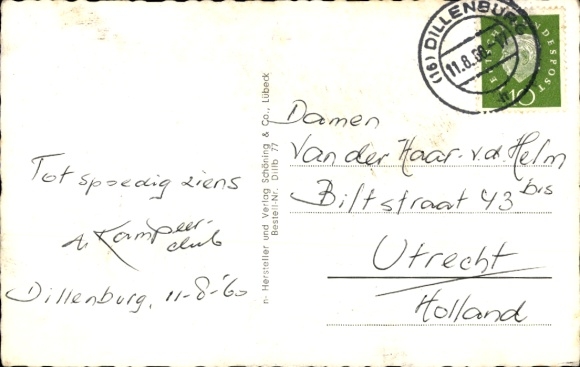 Tot spoedig ziens
Kampeer-
club
Dillenburg, 11-8-'60
n- Hersteller und Verlag Schöning & Co., Lübeck
Bestell-Nr. Dillb 77
(16) DILLENBURG
11.8.60.-17
DEUTSCHE BUNDESPOST
10
Damen
Van der Haar-v.d. Helm
Biltstraat 43 bis
Utrecht
Holland